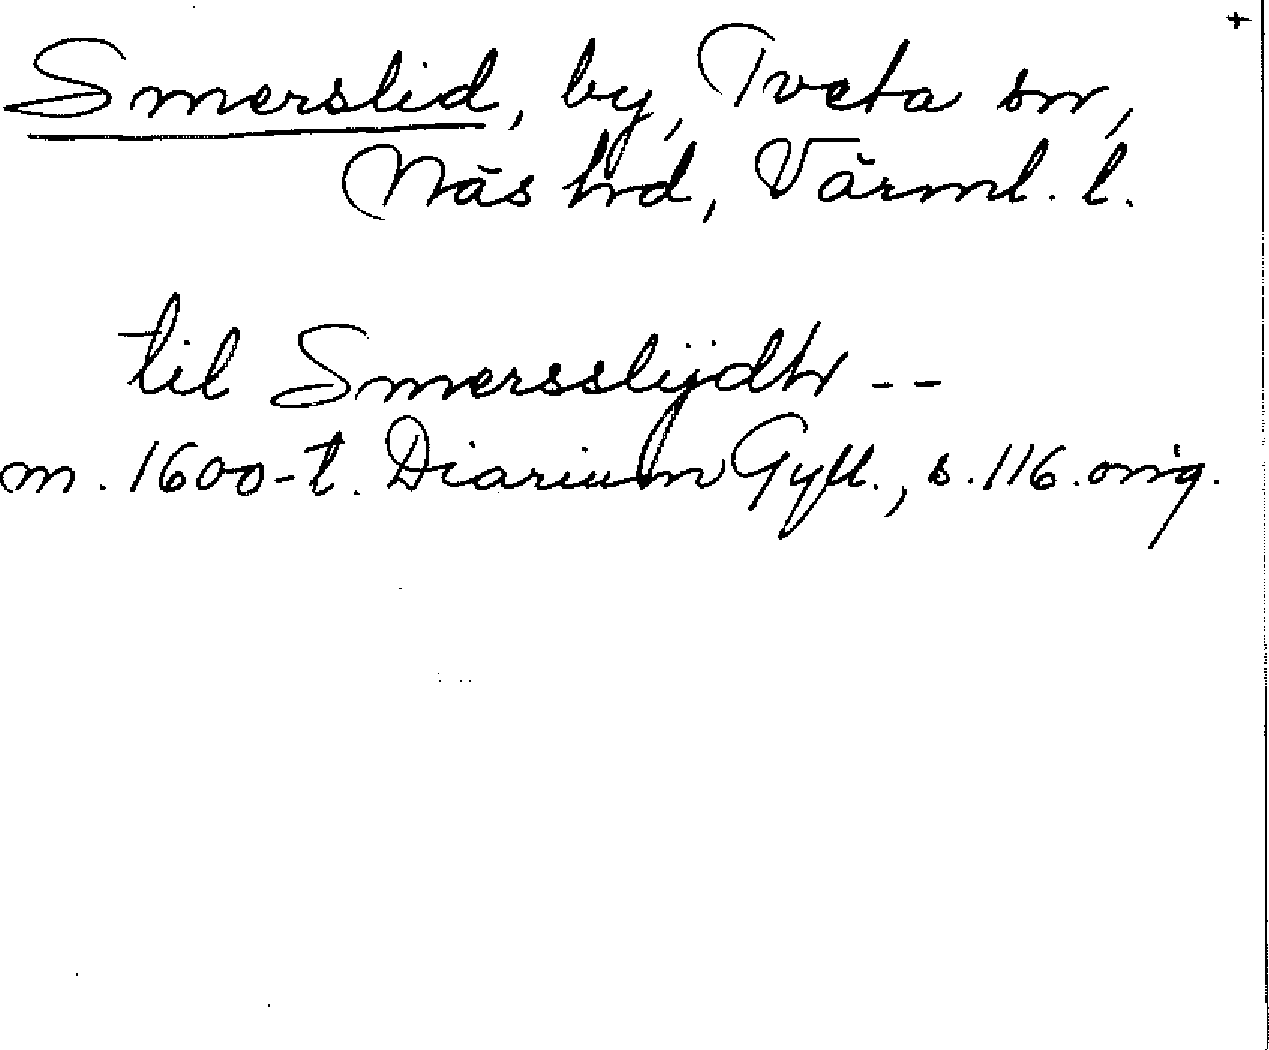 +
Smerslid, by, Tveta sn,
Näs hd, Värml. l.
til Smersslijdh --
m. 1600-t. Diarium Gyll., s. 116. orig.